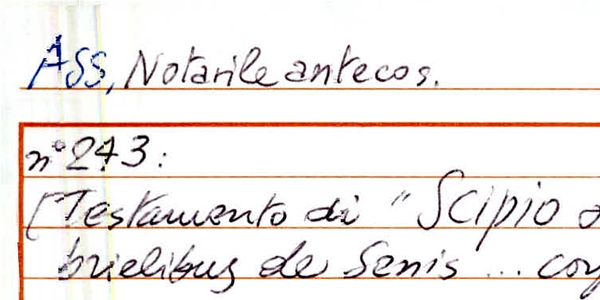 ASS, Notarile antecos.
n° 273:
[Testamento di "Scipio
brielibus de Senis ...